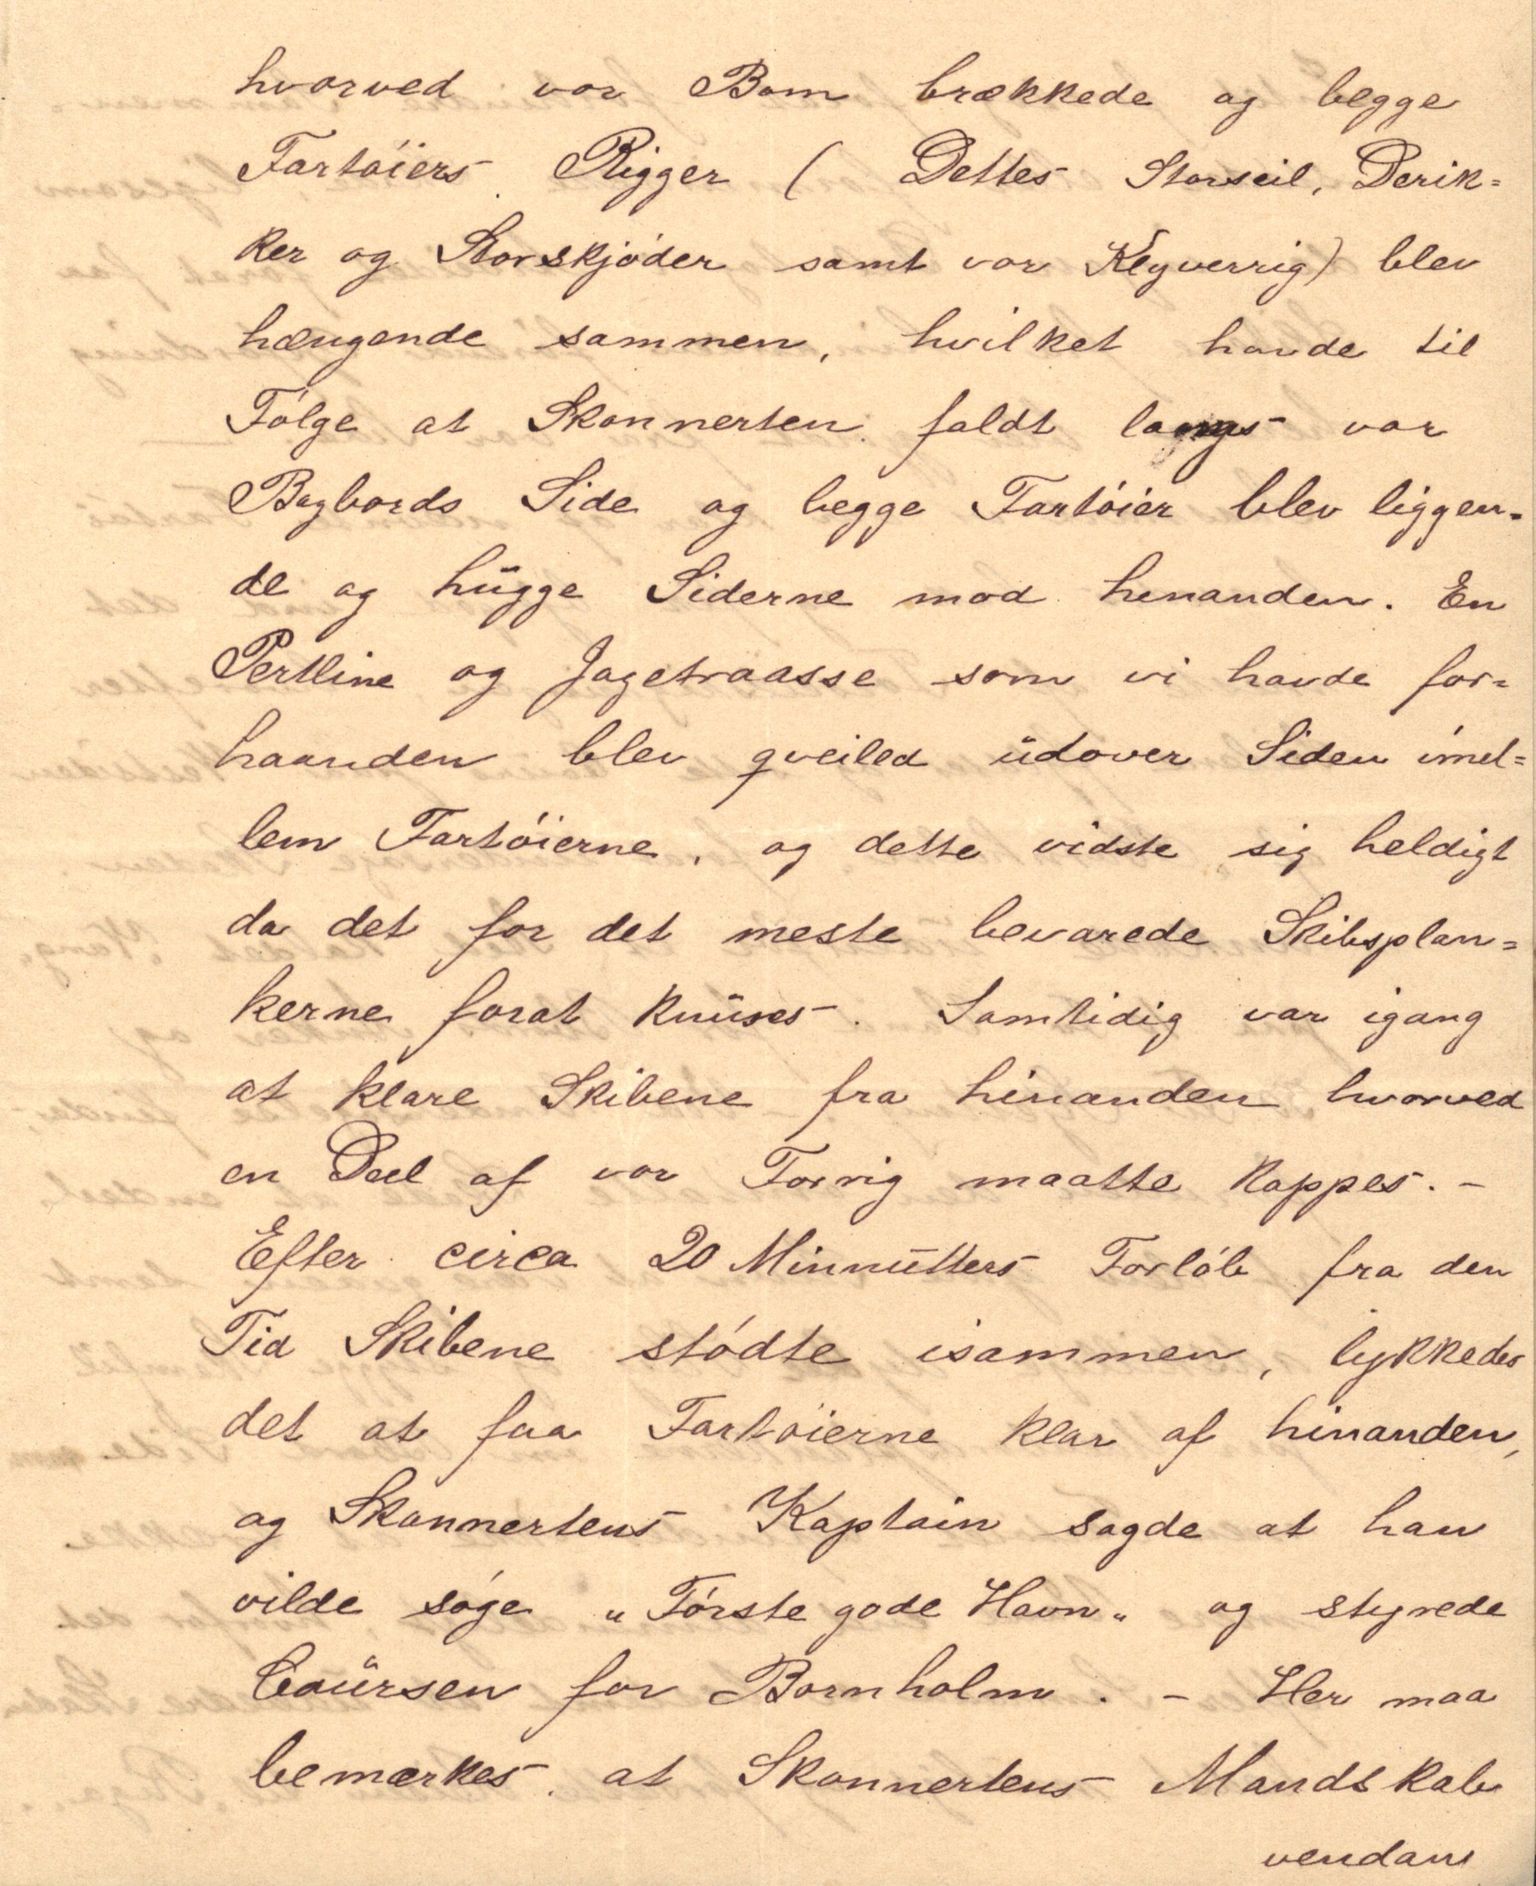 hvorved vor Bom brækkede og begge
Fartøiers Rigger ( Dettes Storseil, Derik=
ker og Storskjøder samt vor Klyverrig) blev
hængende sammen, hvilket havde til
Følge at Skonnerten faldt langs vor
Bagbords Side og begge Fartøier blev liggen=
de og hugge Siderne mod henanden. En
Pertline og Jagetraasse som vi havde for=
haanden blev qveiled udover Siden imel=
lem Fartøierne, og dette vidste sig heldigt
da det for det meste bevarede Skibsplan=
kerne forat knuses. Samtidig var igang
at klare Skibene fra hinanden hvorved
en Deel af vor Forrig maatte kappes. -
Efter circa 20 Minnutters Forløb fra den
Tid Skibene stødte isammen, lykkedes
det at faa Fartøierne klar af hinanden,
og Skonnertens Kaptain sagde at han
vilde søge „Første gode Havn„ og styrede
Coursen for Bornholm. - Her maa
bemærkes at Skonnertens Mandskab
vendam